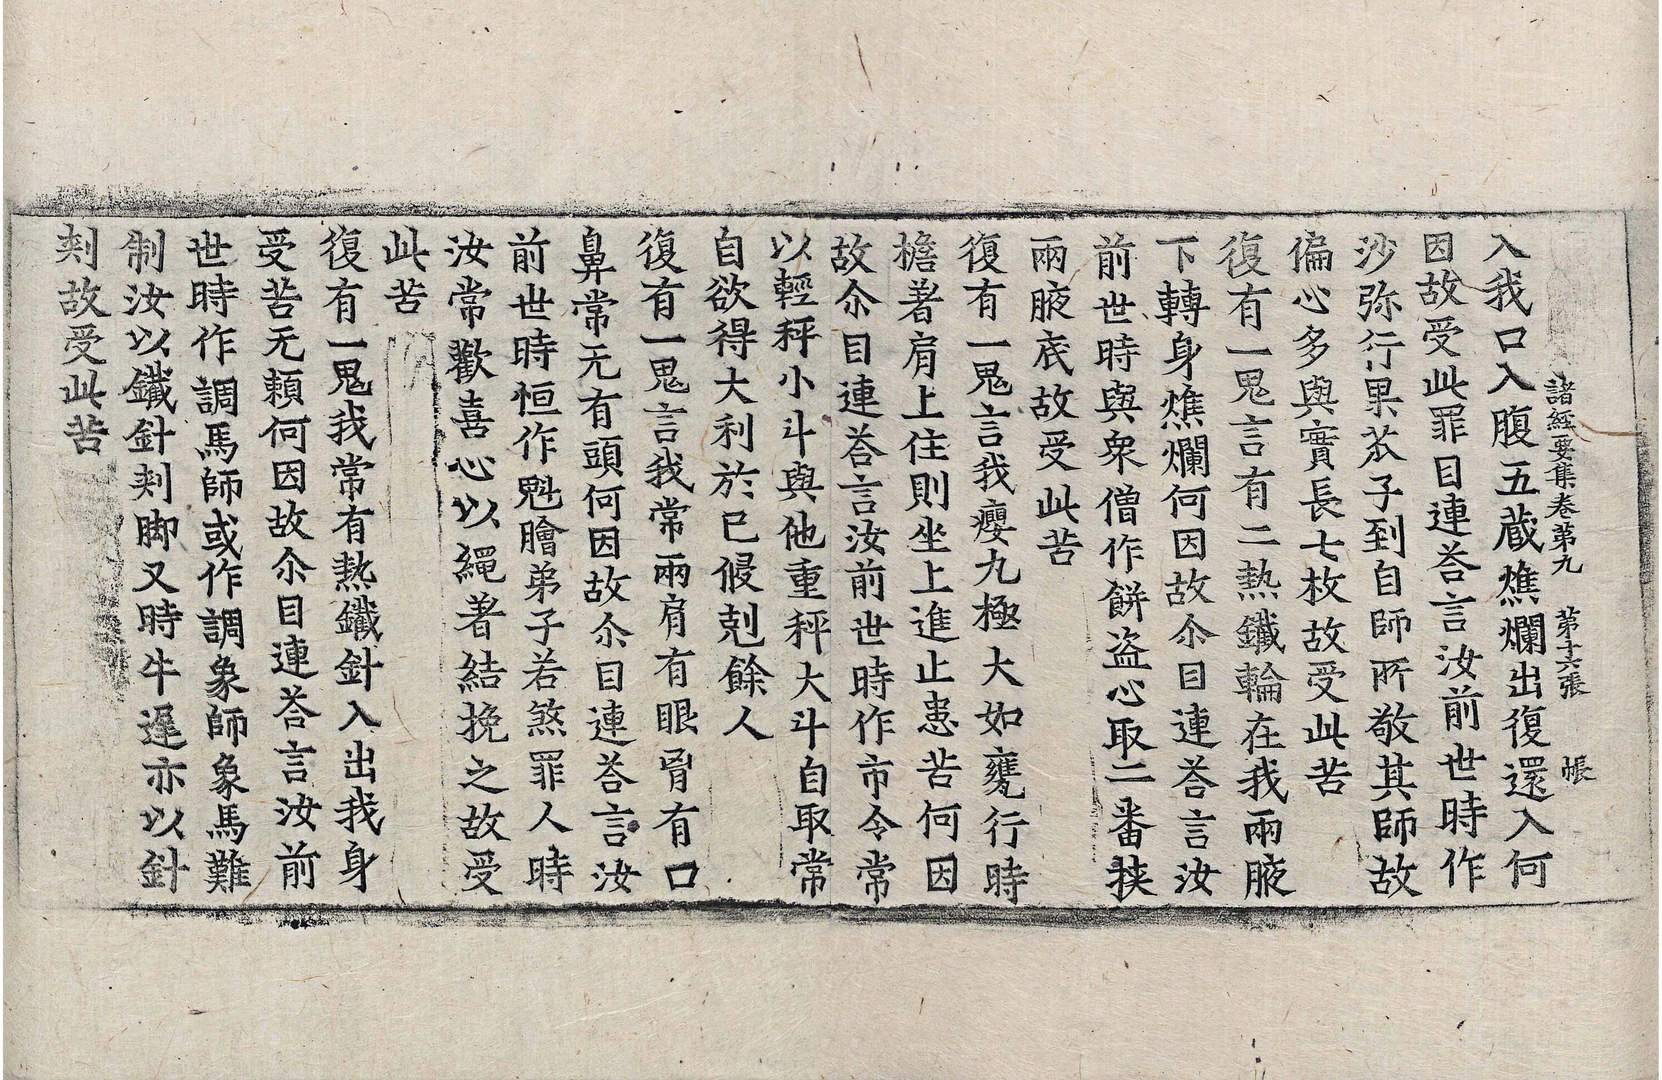 諸經要集卷第九　第十六張　帳
入我口入腹五蔵燋爛出復還入何
因故受此罪目連荅言汝前世時作
沙弥行果苽子到自師所敬其師故
偏心多與實長七枚故受此苦
復有一鬼言有二熱鐵輪在我兩腋
下轉身燋爛何因故尒目連荅言汝
前世時與衆僧作餅盗心取二番挟
兩腋底故受此苦
復有一鬼言我癭九極大如甕行時
檐著肩上住則坐上進止患苦何因
故尒目連荅言汝前世時作市令常
以輕秤小斗與他重秤大斗自取常
自欲得大利於已侵剋餘人
復有一鬼言我常兩肩有眼胷有口
鼻常无有頭何因故尒目連荅言汝
前世時恒作魁膾弟子若煞罪人時
汝常歡喜心以繩著結挽之故受
此苦
復有一鬼我常有熱鐵針入出我身
受苦无頼何因故尒目連荅言汝前
世時作調馬師或作調象師象馬難
制汝以鐵針刾脚又時牛遅亦以針
刾故受此苦